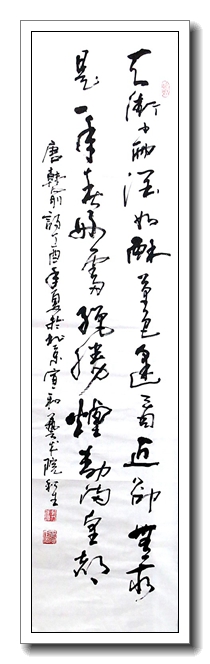 天街小雨潤如酥草色遥看近卻無最
是一年春好處絕勝煙柳滿皇都
唐韓愈詩丁酉年夏於北京宣和藝术院